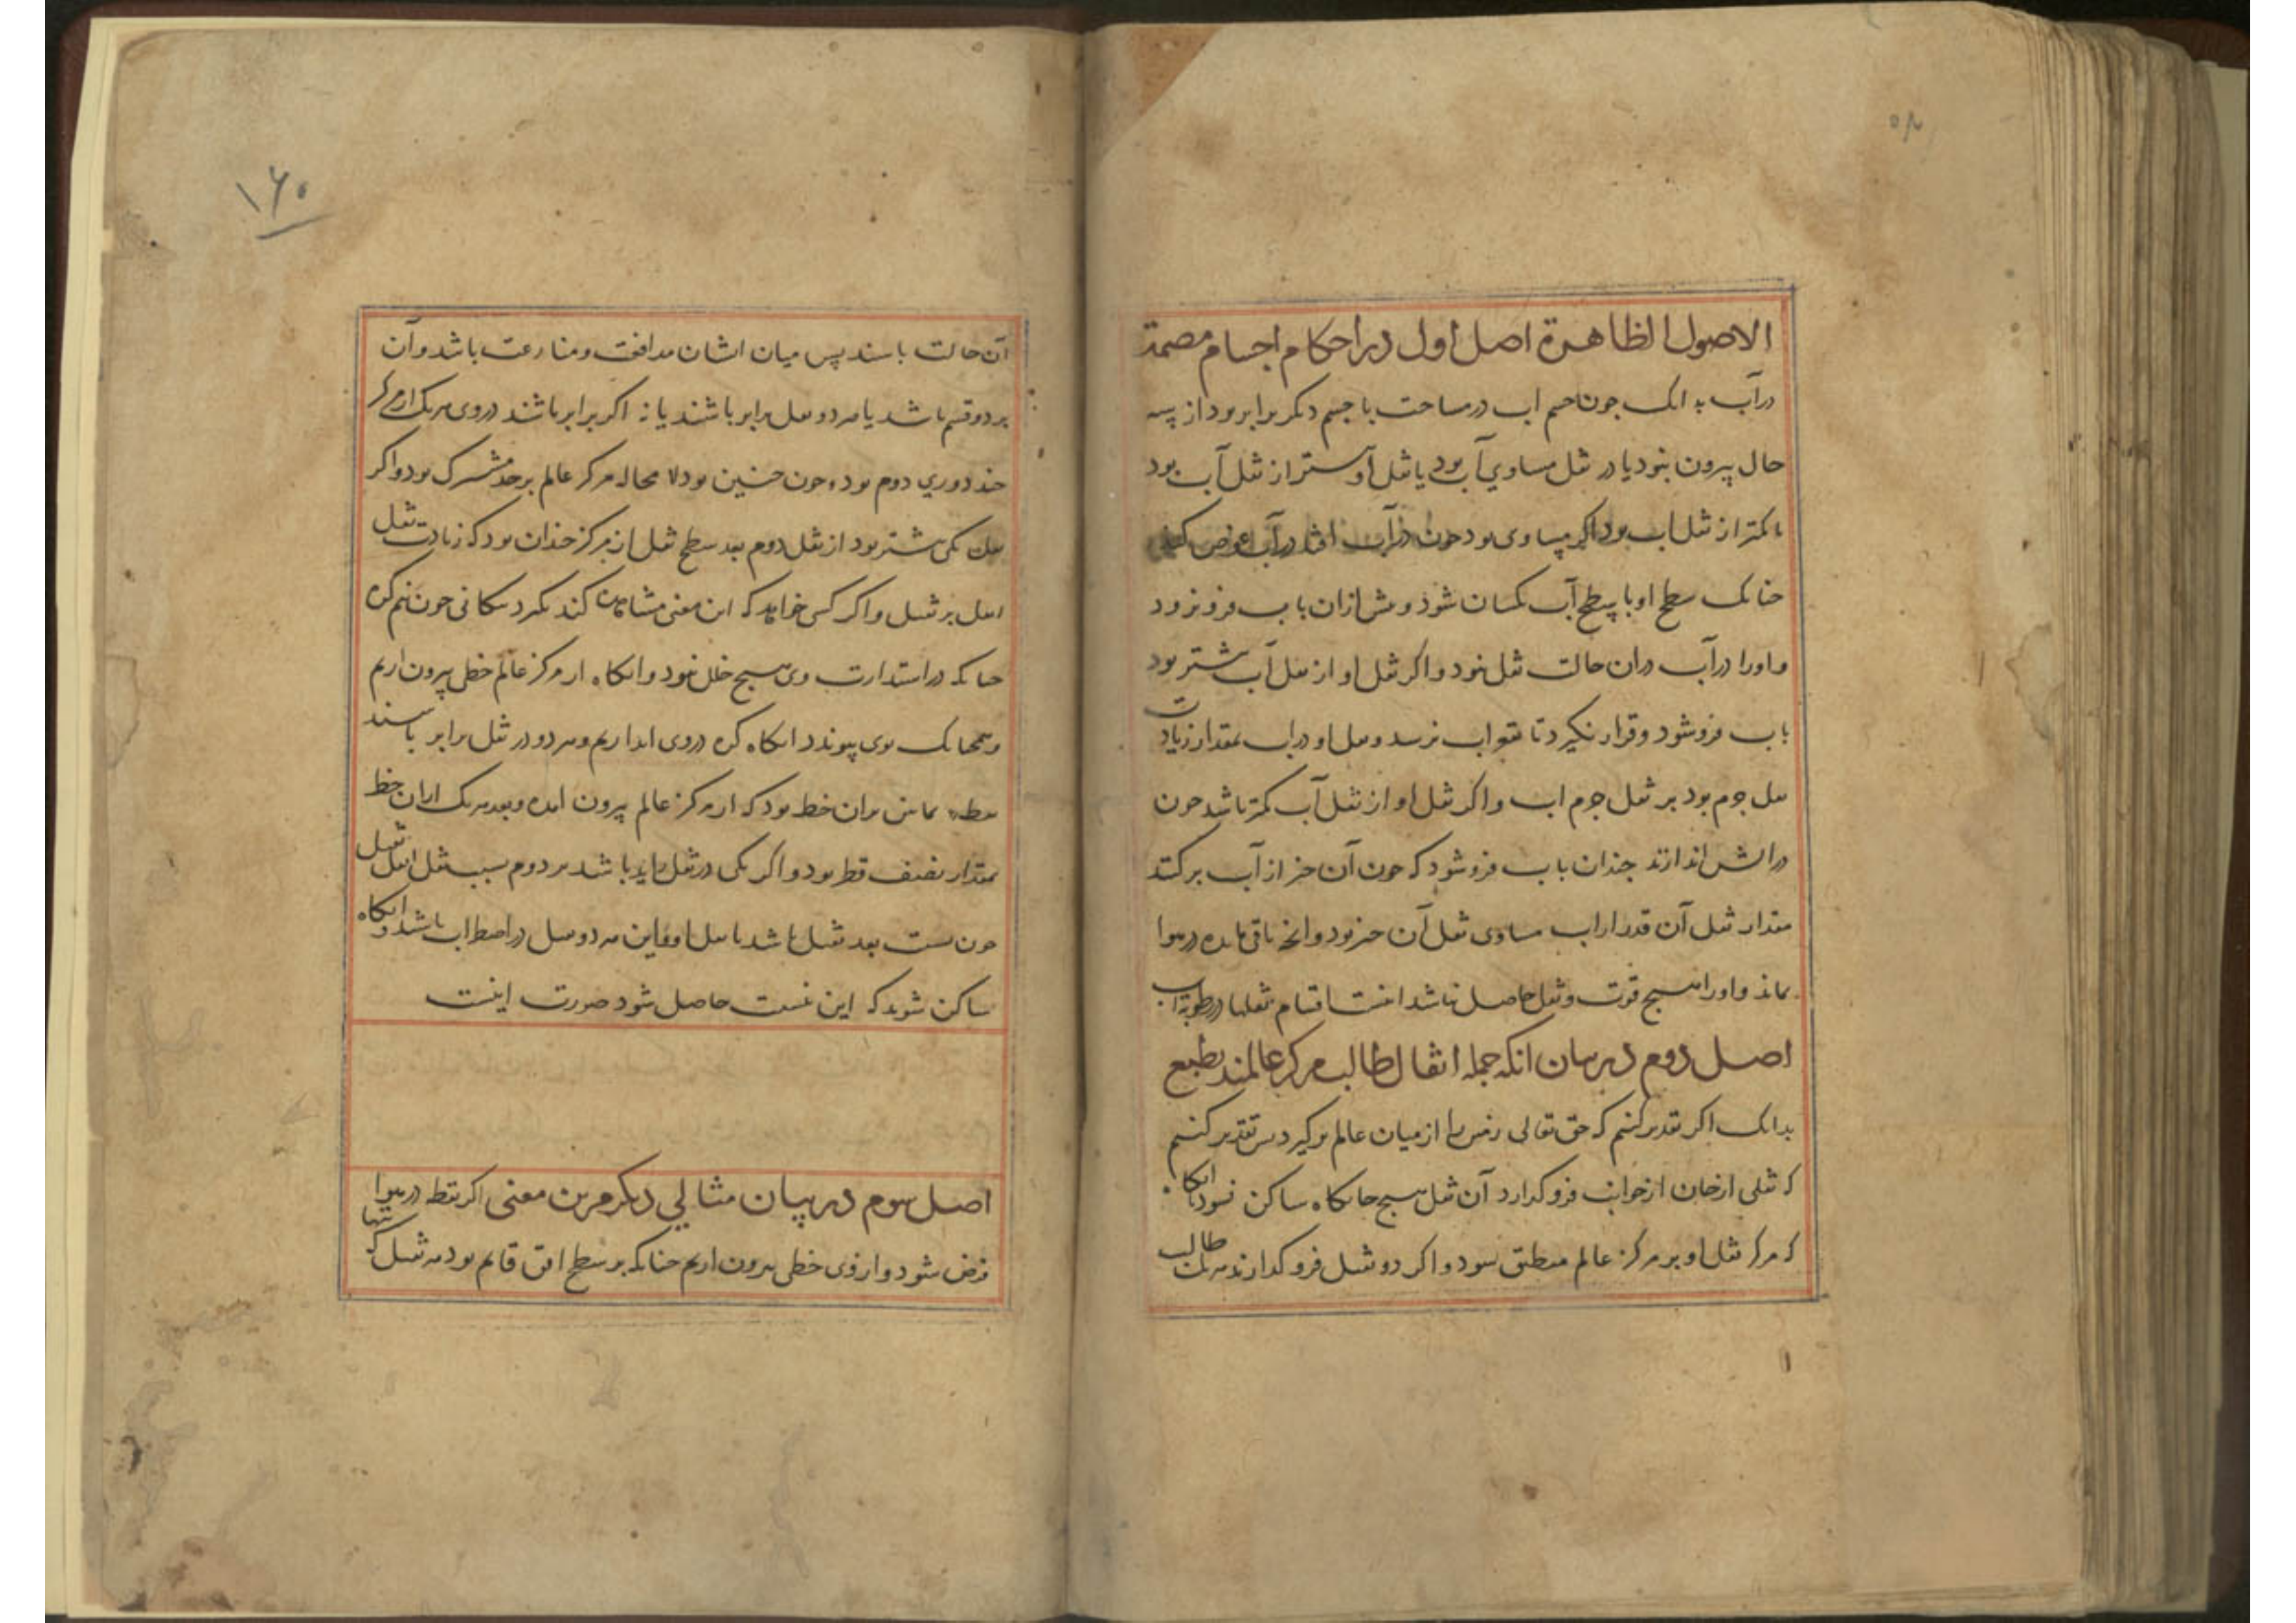 الاصول الظاهرة اصل اول در احکام اجسام مصمة
در آب بدانک جون جسم اب در مساحت با جسم دکر برابر بود از سه
حال بیرون نبود یا در ثقل مساوی آب بود یا ثقل او بیشتر از ثقل آب بود
یا کمتر از ثقل اب بود اکر مساوی بود جون در آب افتد در آب غوص کند
جنانک سطح او با سطح آب یکسان شود و بیش ازان باب فرو نرود
و اورا در آب دران حالت ثقل نبود و اکر ثقل او از ثقل آب بیشتر بود
باب فرو شود و قرار نکیرد تا بقعر اب نرسد و ثقل او در اب بمقدار زیادت
ثقل جرم بود بر ثقل جرم اب و اکر ثقل او از ثقل آب کمتر باشد جون
در آبش اندازند جندان باب فرو شود که جون آن جیز از آب برکشد
مقدار ثقل آن قدر از اب مساوی ثقل آن جیز بود وانجه باقی مانده در هوا
بماند و اورا هیج قوت و ثقل حاصل نباشد اینست اقسام ثقلها در رطوبة اب
اصل دوم در بیان انکه جمله اثقال طالب مرکز عالمند بطبع
بدانک اکر تقدیر کنیم که حق تعالی زمین را از میان عالم برکیرد بس تقدیر کنیم
که ثقلی از جانب از جوانب فرو کذارد آن ثقل هیج جایکاه ساکن نشود تا انکاه
که مرکز ثقل او بر مرکز عالم منطبق شود و اکر دو ثقل فرو کذارند هر یک طالب
۱۶۰
آن حالت باشند پس میان ایشان مدافعت و منازعت باشد و آن
بر دو قسم باشد یا هر دو ثقل برابر باشند یا نه اکر برابر باشند دروی هر یک از مرکز
جند دوری دوم بود و جون جنین بود لا محاله مرکز عالم بر حد مشترک بود و اکر
ثقل یکی بیشتر بود از ثقل دوم بعد سطح ثقل از مرکز جندان بود که زیادت ثقل
اثقل بر ثقیل و اکر کسی خواهد که این معنی مشاهده کند بکیرد مکانی جون نیم کره
جنانکه در استدارت وی هیج خلل نبود وانکاه از مرکز عالم خطی بیرون اریم
و همجنانک بوی پیوندد انکاه کره دروی اندازیم و هر دو در ثقل برابر باشند
نقطه تماس بران خط بود که از مرکز عالم بیرون امده و بعد هر یک ازان خط
بمقدار نصف قطر بود و اکر یکی در ثقل زاید باشد بر دوم نسبت ثقل اثقل بثقیل
جون نسبت بعد ثقیل باشد با اثقل و این هر دو ثقل در اضطراب باشد و انکاه
ساکن شوند که این نسبت حاصل شود صورت اینست
اصل سوم در بیان مثالی دیکر مرین معنی اکر نقطه در هوا
فرض شود و ازوی خطی بیرون اریم جنانکه بر سطح افق قایم بود هر ثقیل که بتنها